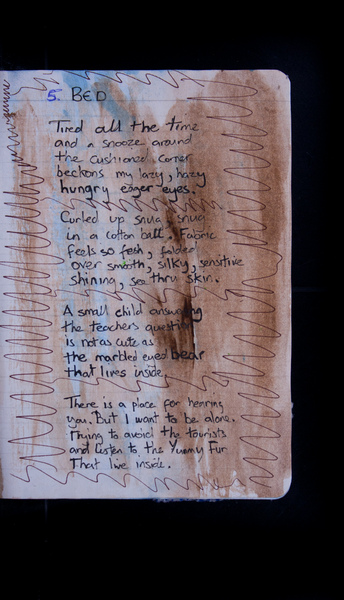 5. BED
Tired all the time
and a snooze around
the cushioned corner
beckons my lazy, hazy
hungry eager eyes.
Curled up snug, snug
in a cotton ball. Fabric
feels so fesh, folded
over smooth, silky, sensitive
shining, see thru skin.
A small child answering
the teachers question
is not as cute as
the marbled eyed bear
that lives inside.
There is a place for hearing
you. But I want to be alone.
Trying to avoid the tourists
and listen to the Yummy Fur
That live inside.